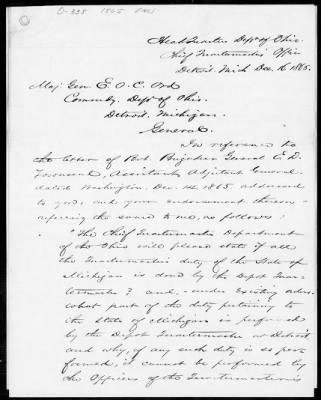 O-338 1865
Head Quarters Dept of Ohio.
Chief Quartermasters Office
Detroit. Mich Dec. 16 1865.
Maj. Gen. E. O. C. Ord
Commdg. Dept of Ohio.
Detroit. Michigan.
General.
In reference to
the letter of Bvt. Brigadier General E. D.
Townsend, Assistant Adjutant General,
dated Washington, Dec. 14 1865 addressed
to you, and your endorsement thereon
referring the same to me, as follows:
"The Chief Quartermaster Department
of the Ohio will please state if all
the Quartermaster's duty of the State of
Michigan is done by the Depot Quar-
termaster? and, under existing orders
what part of the duty pertaining to
the State of Michigan is perform-ed
by the Depot Quartermaster at Detroit
and why, if any such duty is so per-
formed, it cannot be performed by
the Officers of the Quartermaster's